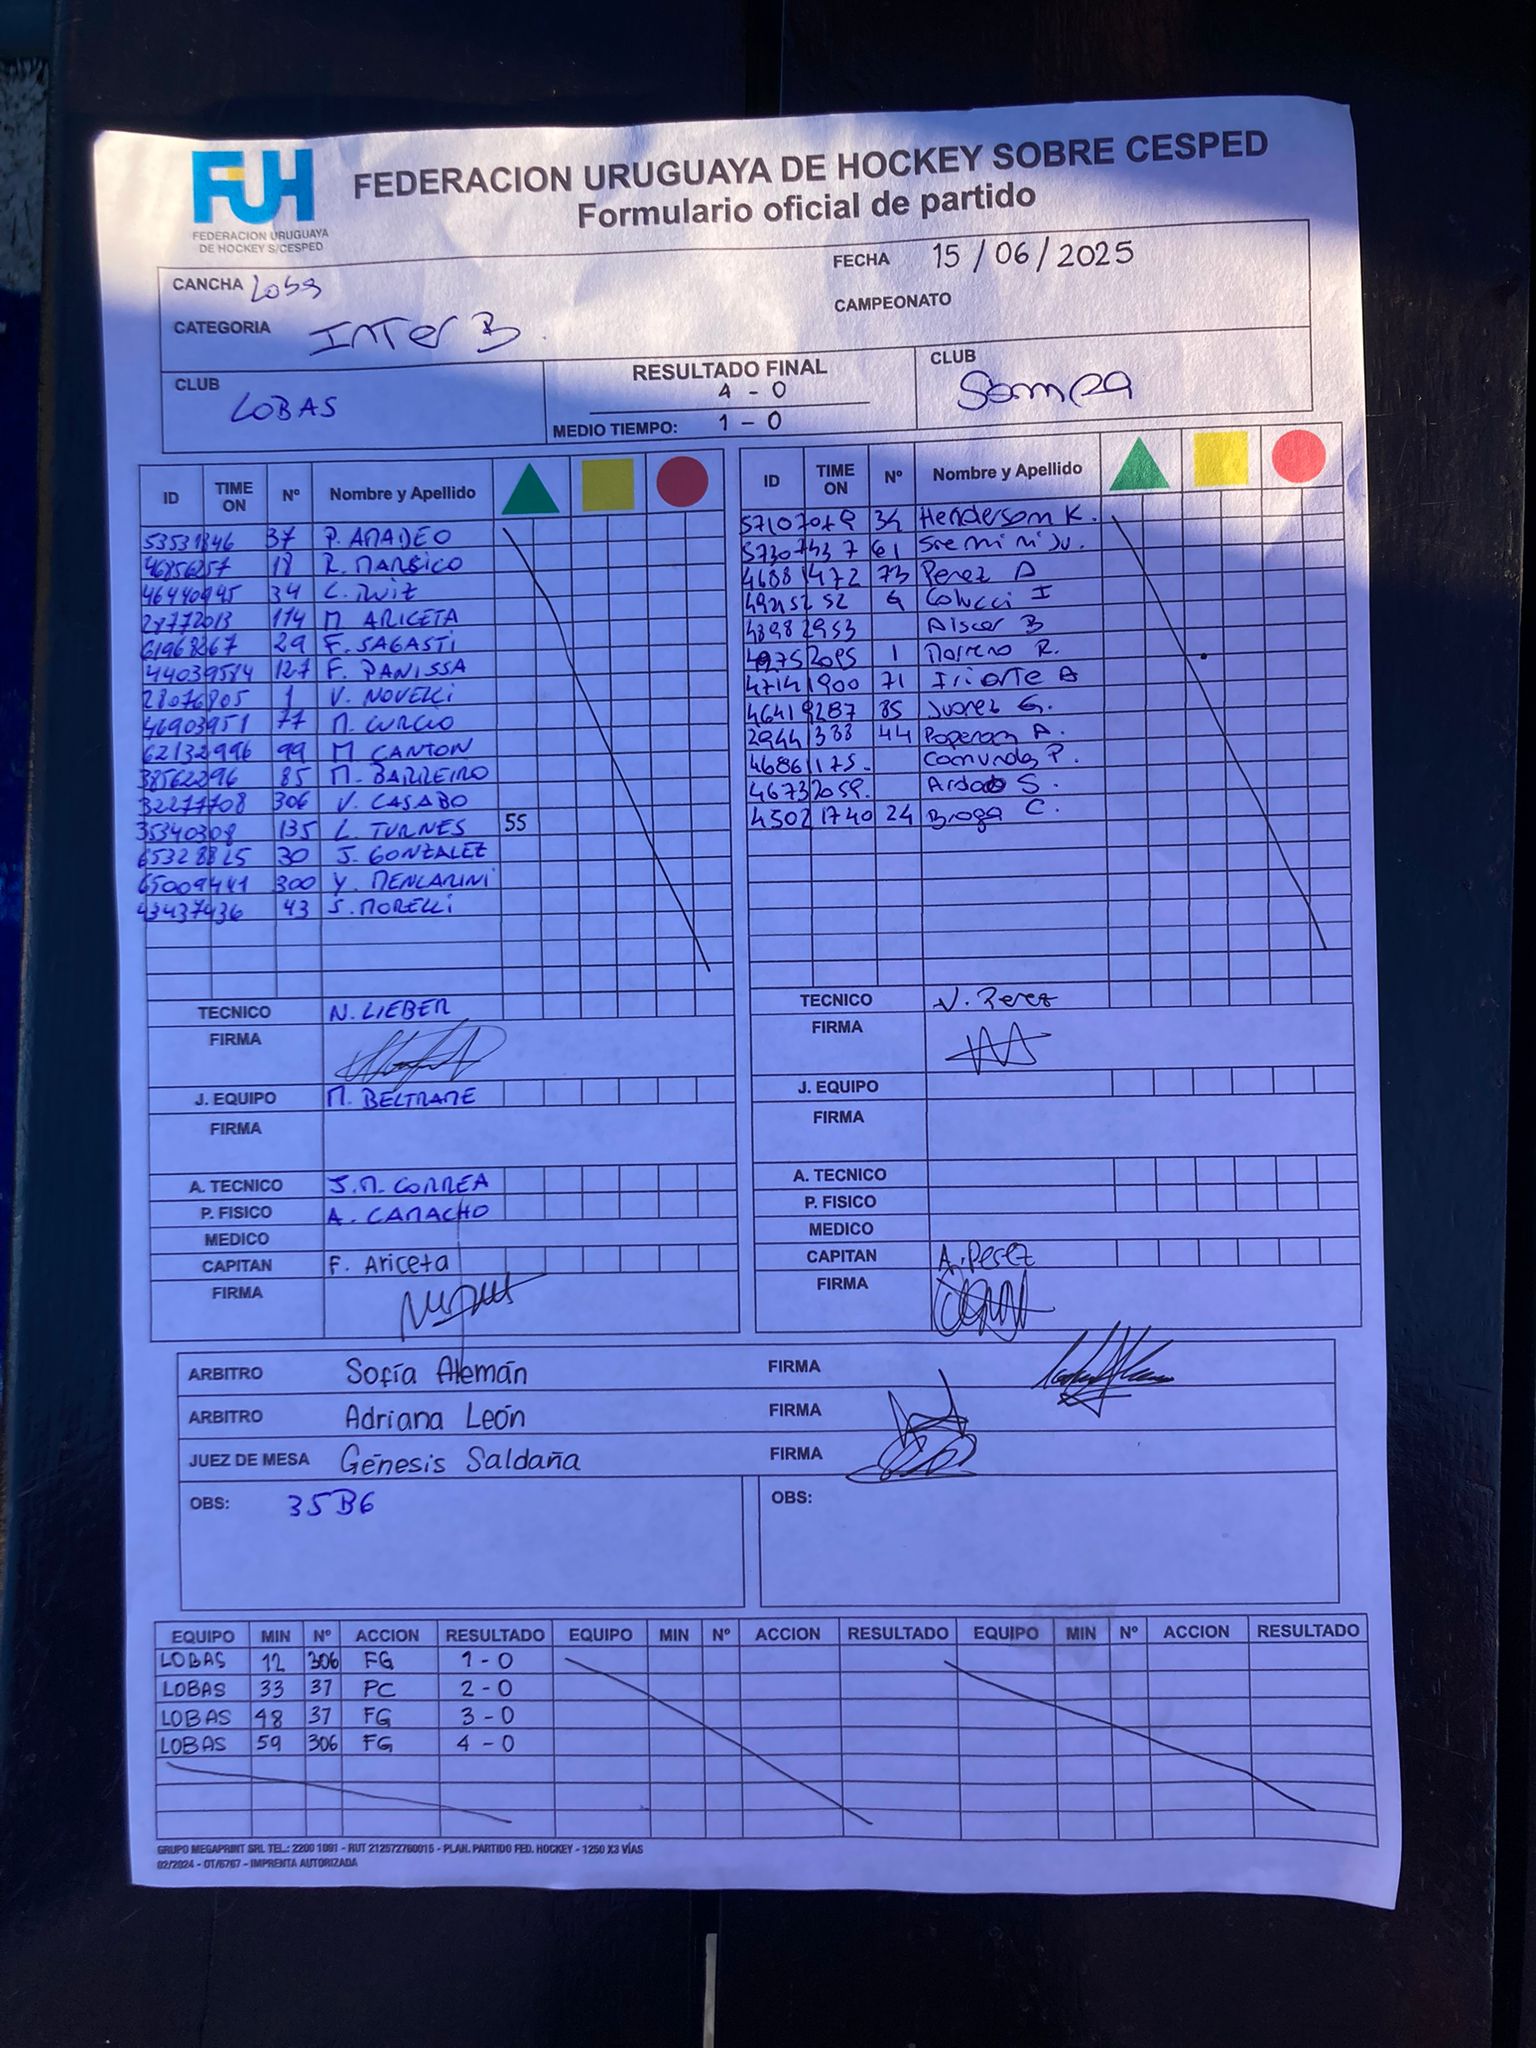 FUH
FEDERACION URUGUAYA
DE HOCKEY S/CESPED
FEDERACION URUGUAYA DE HOCKEY SOBRE CESPED
Formulario oficial de partido
CANCHA Lobas
FECHA 15/06/2025
CATEGORIA Inter B.
CAMPEONATO
CLUB LOBAS
RESULTADO FINAL 4 - 0
MEDIO TIEMPO: 1 - 0
CLUB
ID TIME ON Nº Nombre y Apellido
53531846 37 P. AMADEO
46856257 18 R. MARSICO
46440995 34 C. RUIZ
28772013 114 M. ARICETA
61968267 29 F. SAGASTI
44039514 127 F. PANISSA
28076805 1 V. NOVELLI
46903951 77 M. CURCIO
62132996 99 M. CANTON
38562296 85 M. BARREIRO
32277708 306 V. CASABO
35340308 135 L. TURNES 55
65328825 30 J. GONZALEZ
65009441 300 Y. MENCARINI
43437436 43 S. MORELLI
TECNICO N. LIEBER
FIRMA
J. EQUIPO M. BELTRAME
FIRMA
A. TECNICO J.M. CORREA
P. FISICO A. CAMACHO
MEDICO
CAPITAN F. Ariceta
FIRMA
ID TIME ON Nº Nombre y Apellido
57107019 34 Henderson K.
57307437 61 Ju.
46881472 73 Perez A
49215252 9 Colucci I
48982953 B
49752095 1 Moreno R.
47141900 71 Iriarte A
46419287 85 Juarez G.
2944388 44 A.
4686175. P.
46732059. S.
45021740 24 Braga C.
TECNICO N. Perez
FIRMA
J. EQUIPO
FIRMA
A. TECNICO
P. FISICO
MEDICO
CAPITAN A. Perez
FIRMA
ARBITRO Sofía Alemán FIRMA
ARBITRO Adriana León FIRMA
JUEZ DE MESA Génesis Saldaña FIRMA
OBS: 35B6
OBS:
EQUIPO MIN Nº ACCION RESULTADO EQUIPO MIN Nº ACCION RESULTADO EQUIPO MIN Nº ACCION RESULTADO
LOBAS 12 306 FG 1 - 0
LOBAS 33 37 PC 2 - 0
LOBAS 48 37 FG 3 - 0
LOBAS 59 306 FG 4 - 0
GRUPO MEGAPRINT SRL TEL.: 2200 1091 - RUT 212572760015 - PLAN. PARTIDO FED. HOCKEY - 1250 X3 VÍAS
02/2024 - OT/6767 - IMPRENTA AUTORIZADA